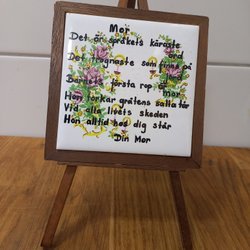 Mor
Det är språkets käraste
ord
Det trognaste som finns på
jord
Barnets första rop är
mor
Hon torkar gråtens salta tår
Vid alla livets skeden
Hon alltid hos dig står
Din Mor